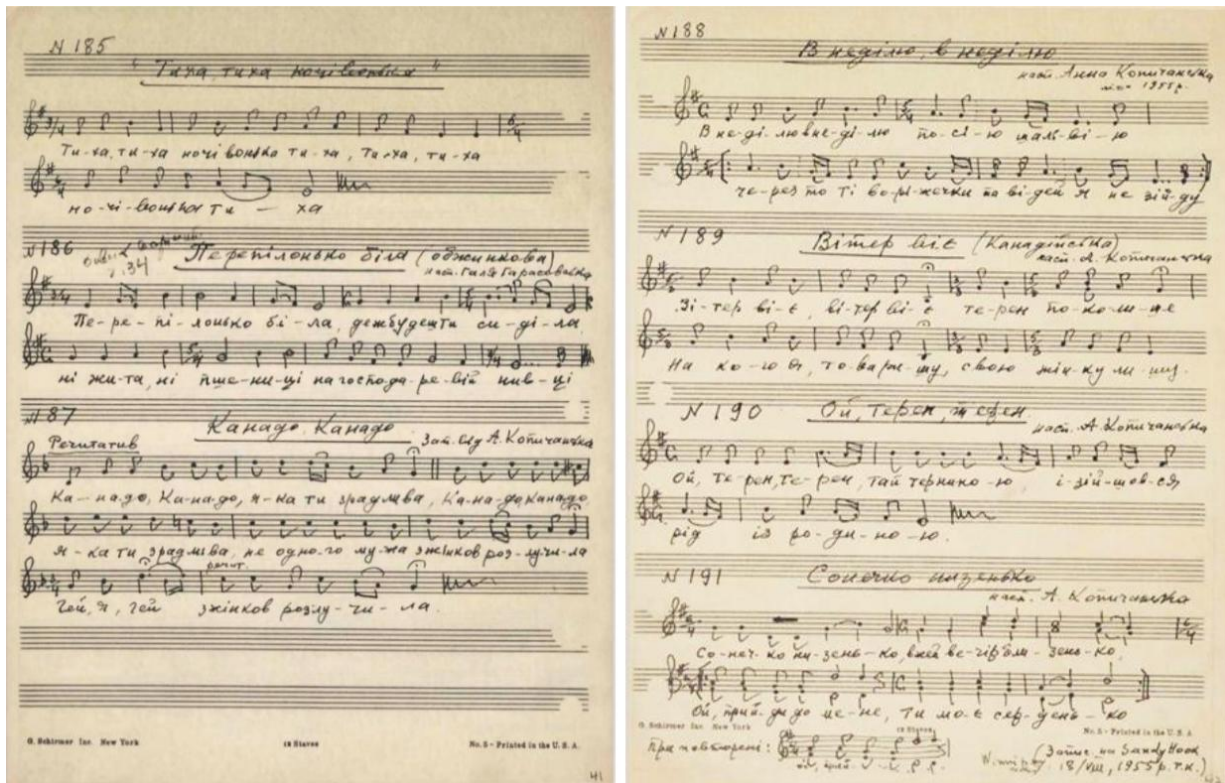 N 185
"Тиха, тиха ночівонька"
Ти-ха, ти-ха ночівонька ти-ха, ти-ха, ти-ха
но-чі-вонька ти — ха
N 186
Перепілонько біла (обжинкова)
наст. Галя Тарасовська
Пе-ре-пі-лонько бі-ла, де ж будеш ти си-ді-ла
ні жи-та, ні пше-ни-ці на господа-ре-вій нив-ці
N 187
Канадо, Канадо
Речитатив
Зап. від А. Копичанська
Ка-на-до, Ка-на-до, я-ка ти зрадлива, Ка-на-до, Канадо
я-ка ти зрадлива, не одно-го му-жа з жінков роз-лучи-ла
Гей, гей з жінков розлу-чи-ла.
речит.
G. Schirmer Inc. New York
12 Staves
No. 5 - Printed in the U. S. A.
41
N 188
В неділю, в неділю
наст. Анна Копичанська
1955 р.
В не-ді-лю в не-ді-лю по-сі-ю шаль-ві-ю
че-рез то ті во-рі-жечки та від ей я не зій-ду
N 189
Вітер віє (Канадійська)
наст. А. Копичанська
Ві-тер ві-є, ві-тер ві-є те-рен по-ко-ли-ше
На ко-го ти, то-вари-шу, свою жін-ку ли-шиш.
N 190
Ой, терен, терен
наст. А Копичанська
Ой, те-рен, те-рен, тай терни-ко-ю і-зій-шов-ся
рід із ро-ди-но-ю.
N 191
Сонечко низенько
наст. А. Копичанська
Со-неч-ко ни-зень-ко, вже й ве-чір бли-зень-ко,
Ой, прий-ди до ме-не, ти мо-є сер-день-ко
G. Schirmer Inc. New York
12 Staves
No. 5 - Printed in the U. S. A.
При повторені:
ой, прий-
Winnipeg
(Запис на Sandy Hook
18/VIII, 1955 р. т.к.)